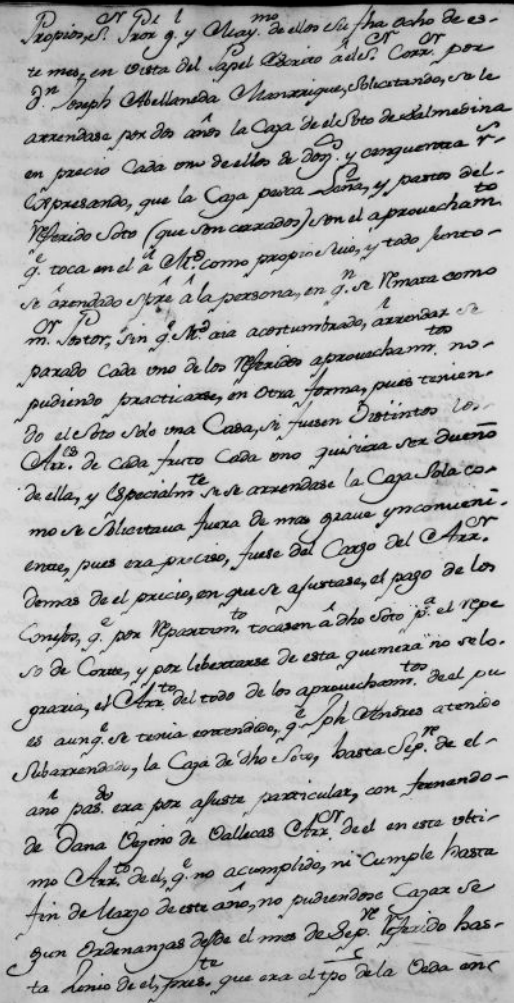 Propios, S.ʳ Pror g.ˡ y May.ᵐᵒ de ellos su fha ocho de es-
te mes, en vista del Papel escrito â el S.ʳ Corr.ᵒʳ por
Dⁿ Joseph Abellaneda Manrrique, solicitando, se le
arrendase por dos años la Caza de el Soto de Salmedina
en precio cada uno de ellos de doz.ᵒˢ y cinquenta r.ˢ
Expresando, que la Caza pesca Leña, y pastos del-
referido Soto (que son cerrados) son el aprovecham.ᵗᵒ
q.ᵉ toca en el â M.ᵈ como propio suio, y todo junto-
se â arrendado spre â la persona, en q.ⁿ se remata como
m.ᵒʳ Postor, sin q.ᵉ M.ᵈ aia acostumbrado, â arrendar se
parado cada uno de los referidos aprovecham.ᵗᵒˢ no-
pudiendo practicarse, en otra forma, pues tenien-
do el Soto solo una Casa, si fuesen Distintos los
Arr.ᵉˢ de cada fruto cada uno quisiera ser dueño
de ella, y especialm.ᵗᵉ si se arrendase la Caza sola co-
mo se solicitava fuera de mas grave ynconveni-
ente, pues era preciso, fuese del Cargo del Arr.ᵒʳ
demas de el precio, en que se ajustase, el pago de los
Conejos, q.ᵉ por Repartim.ᵗᵒ tocasen â dho Soto p.ᵃ el repe
so de Corte, y por libertarse de esta quimera no se lo-
graria, el Arr.ᵗᵒ del todo de los aprovecham.ᵗᵒˢ de el pu
es aunq.ᵉ se tenia entendido, q.ᵉ Jph Andres a tenido
subarrendado, la Caza de dho Soto, hasta Sep.ʳᵉ de el-
año pas.ᵈᵒ era por ajuste particular, con fernando-
de Dana Vezino de Vallecas Arr.ᵒʳ de el en este ulti-
mo Arr.ᵗᵒ de el, q.ᵉ no a cumplido, ni Cumple hasta
fin de Marzo de este año, no pudiendose Cazar se
gun ordenanzas desde el mes de Sep.ʳᵉ referido has-
ta Junio de el pres.ᵗᵉ que era el tpo de la Veda en